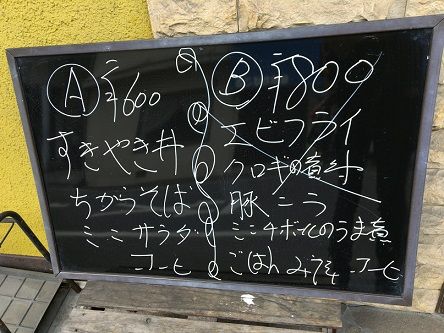 Ⓐ ¥600
すきやき丼
ちからそば
ミニサラダ
コーヒ
Ⓑ ¥800
エビフライ
クロギの
豚こう
ミニチボールのうま煮
ごはん みそ コーヒ